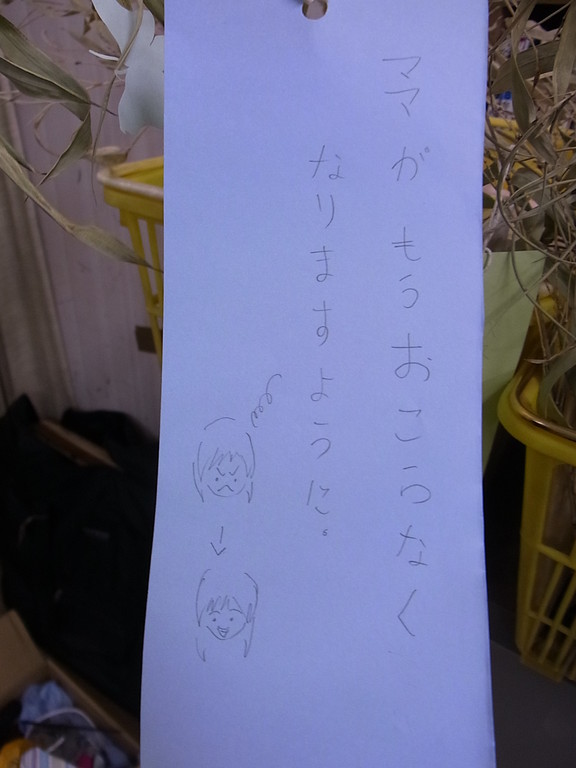 ママがもうおこらなく
なりますように。